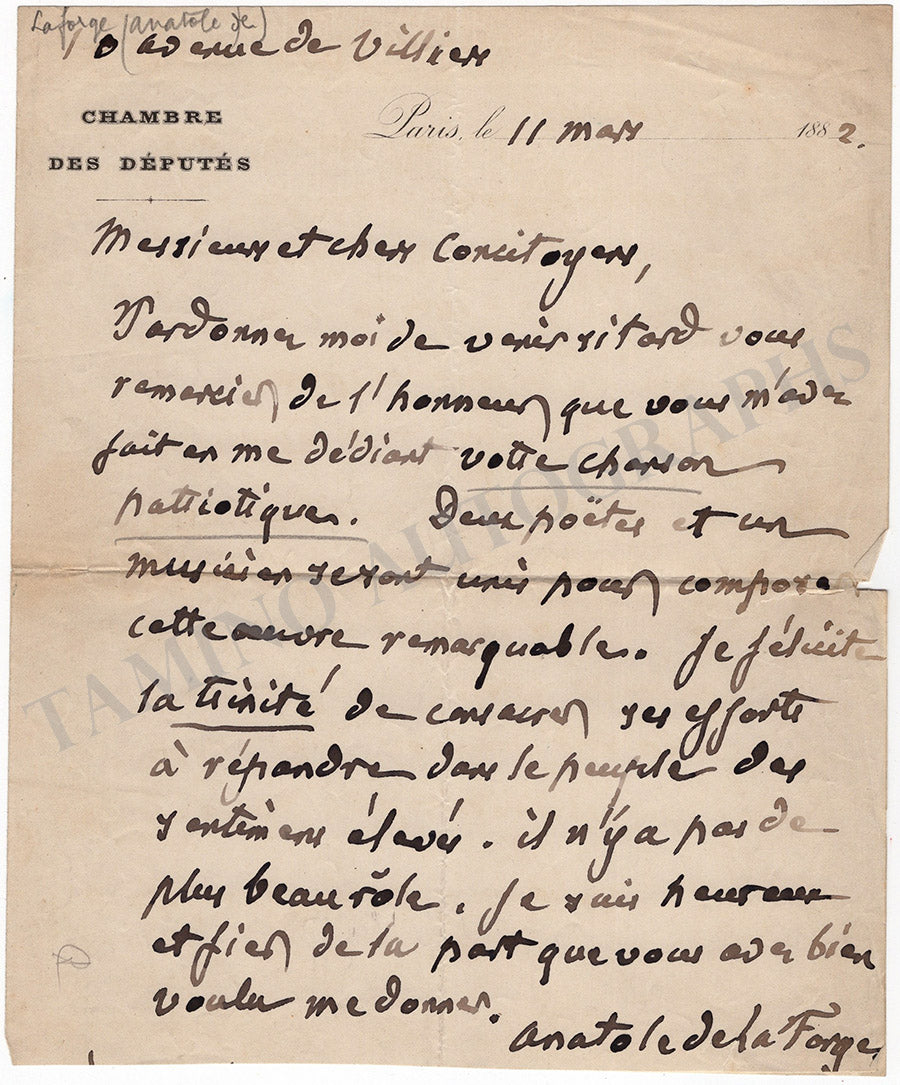 Laforge (anatole de)
18 avenue de Villiers
CHAMBRE
DES DÉPUTÉS
Paris, le 11 mars 1882.
Messieurs et chers Concitoyens,
Pardonnez moi de venir si tard vous
remercier de l'honneur que vous m'avez
fait en me dédiant votre chanson
patriotique. Deux poëtes et un
musicien se sont unis pour composer
cette œuvre remarquable. Je félicite
la trinité de consacrer ses efforts
à répandre dans le peuple des
sentimens élevés. il n'y a pas de
plus beau rôle. Je suis heureux
et fier de la part que vous avez bien
voulu me donner.
Anatole de la Forge.
TAMINO AUTOGRAPHS